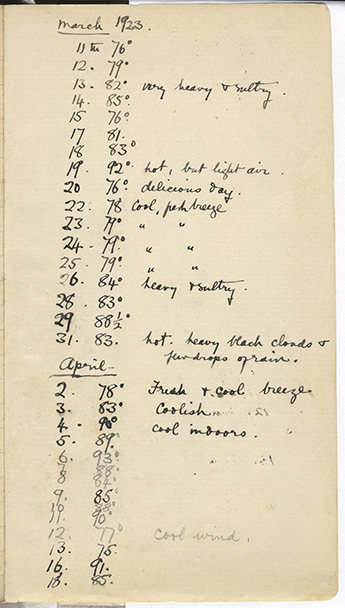 March 1923.
11th 76°
12. 79°
13. 82° very heavy & sultry.
14. 85°.
15 76°
17 81.
18 83°
19. 92° hot, but light air.
20 76° delicious day.
22 78 Cool, fresh breeze
23. 79° " "
24. 79° " "
25. 79° " "
26. 84° heavy & sultry.
28. 83°
29 88½°
31. 83. hot. heavy black clouds &
few drops of rain.
April
2. 78° Fresh & cool breeze
3. 83° Coolish
4. 90° cool indoors.
5. 89°
6. 93°
7 88°
8 84°
9. 85°
88°
11. 90°
12. 77° cool wind.
13. 75.
16. 91.
18. 85.